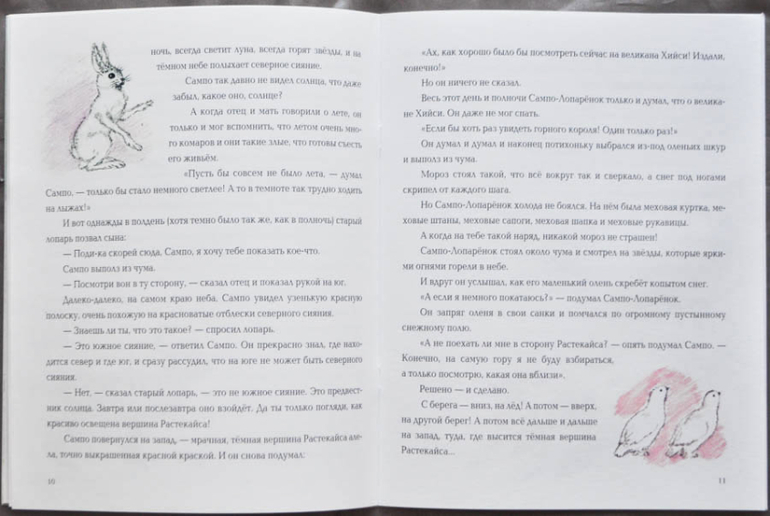 ночь, всегда светит луна, всегда горят звёзды, и на
тёмном небе полыхает северное сияние.
Сампо так давно не видел солнца, что даже
забыл, какое оно, солнце?
А когда отец и мать говорили о лете, он
только и мог вспомнить, что летом очень мно-
го комаров и они такие злые, что готовы съесть
его живьём.
«Пусть бы совсем не было лета, — думал
Сампо, — только бы стало немного светлее! А то в темноте так трудно ходить
на лыжах!»
И вот однажды в полдень (хотя темно было так же, как в полночь) старый
лопарь позвал сына:
— Поди-ка скорей сюда, Сампо, я хочу тебе показать кое-что.
Сампо выполз из чума.
— Посмотри вон в ту сторону, — сказал отец и показал рукой на юг.
Далеко-далеко, на самом краю неба, Сампо увидел узенькую красную
полоску, очень похожую на красноватые отблески северного сияния.
— Знаешь ли ты, что это такое? — спросил лопарь.
— Это южное сияние, — ответил Сампо. Он прекрасно знал, где нахо-
дится север и где юг, и сразу рассудил, что на юге не может быть северного
сияния.
— Нет, — сказал старый лопарь, — это не южное сияние. Это предвест-
ник солнца. Завтра или послезавтра оно взойдёт. Да ты только погляди, как
красиво освещена вершина Растекайса!
Сампо повернулся на запад, — мрачная, тёмная вершина Растекайса але-
ла, точно выкрашенная красной краской. И он снова подумал:
10
«Ах, как хорошо было бы посмотреть сейчас на великана Хийси! Издали,
конечно!»
Но он ничего не сказал.
Весь этот день и полночи Сампо-Лопарёнок только и думал, что о велика-
не Хийси. Он даже не мог спать.
«Если бы хоть раз увидеть горного короля! Один только раз!»
Он думал и думал и наконец потихоньку выбрался из-под оленьих шкур
и выполз из чума.
Мороз стоял такой, что всё вокруг так и сверкало, а снег под ногами
скрипел от каждого шага.
Но Сампо-Лопарёнок холода не боялся. На нём была меховая куртка, ме-
ховые штаны, меховые сапоги, меховая шапка и меховые рукавицы.
А когда на тебе такой наряд, никакой мороз не страшен!
Сампо-Лопарёнок стоял около чума и смотрел на звёзды, которые ярки-
ми огнями горели в небе.
И вдруг он услышал, как его маленький олень скребёт копытом снег.
«А если я немного покатаюсь?» — подумал Сампо-Лопарёнок.
Он запряг оленя в свои санки и помчался по огромному пустынному
снежному полю.
«А не поехать ли мне в сторону Растекайса? — опять подумал Сампо. —
Конечно, на самую гору я не буду взбираться,
а только посмотрю, какая она вблизи».
Решено — и сделано.
С берега — вниз, на лёд! А потом — вверх,
на другой берег! А потом всё дальше и дальше
на запад, туда, где высится тёмная вершина
Растекайса...
11